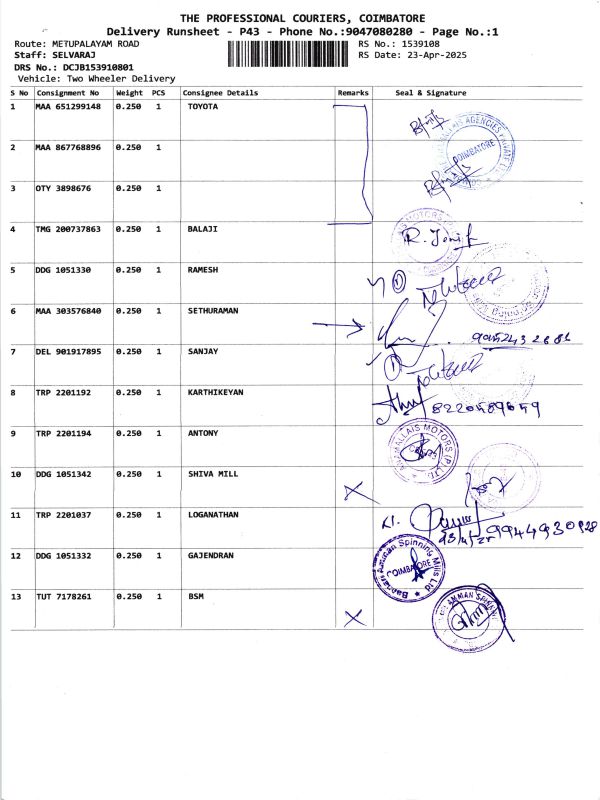 THE PROFESSIONAL COURIERS, COIMBATORE
Delivery Runsheet - P43 - Phone No.:9047080280 - Page No.:1
Route: METUPALAYAM ROAD RS No.: 1539108
Staff: SELVARAJ RS Date: 23-Apr-2025
DRS No.: DCJB153910801
Vehicle: Two Wheeler Delivery
S No Consignment No Weight PCS Consignee Details Remarks Seal & Signature
1 MAA 651299148 0.250 1 TOYOTA
2 MAA 867768896 0.250 1
COIMBATORE
3 OTY 3898676 0.250 1
4 TMG 200737863 0.250 1 BALAJI
5 DDG 1051330 0.250 1 RAMESH
6 MAA 303576840 0.250 1 SETHURAMAN
7 DEL 901917895 0.250 1 SANJAY
8 TRP 2201192 0.250 1 KARTHIKEYAN 8220589659
9 TRP 2201194 0.250 1 ANTONY
10 DDG 1051342 0.250 1 SHIVA MILL X
11 TRP 2201037 0.250 1 LOGANATHAN 9944930928
12 DDG 1051332 0.250 1 GAJENDRAN
Bannari Amman Spinning Mills Ltd
COIMBATORE
13 TUT 7178261 0.250 1 BSM X